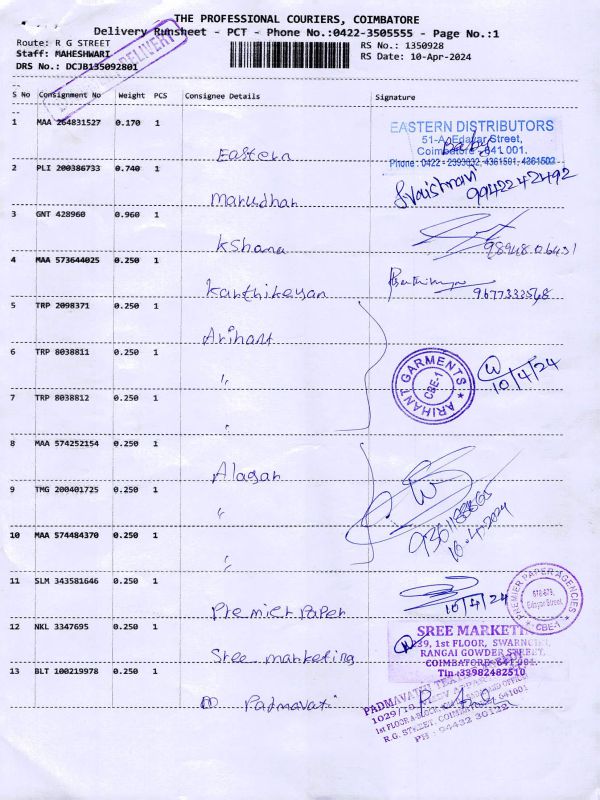 THE PROFESSIONAL COURIERS, COIMBATORE
Delivery Runsheet - PCT - Phone No.:0422-3505555 - Page No.:1
Route: R G STREET
Staff: MAHESHWARI
DRS No.: DCJB135092801
RS No.: 1350928
RS Date: 10-Apr-2024
DELIVERY
S No Consignment No Weight PCS Consignee Details Signature
1 MAA 264831527 0.170 1 Eastern
EASTERN DISTRIBUTORS
51-A, Edayar Street,
Coimbatore - 641 001.
Phone : 0422 - 2393032, 4361501, 4361502
Baby
2 PLI 200386733 0.740 1 Marudhar
9942242492
3 GNT 428960 0.960 1 Kshana
98948 06431
4 MAA 573644025 0.250 1 Karthikeyan
9677333548
5 TRP 2098371 0.250 1 Arihant
6 TRP 8038811 0.250 1 "
ARIHANT GARMENTS
CBE-1
10/4/24
7 TRP 8038812 0.250 1 "
8 MAA 574252154 0.250 1 Alagar
9 TMG 200401725 0.250 1 "
10-4-2024
10 MAA 574484370 0.250 1 "
11 SLM 343581646 0.250 1 Premier Paper
10/4/24
PREMIER PAPER AGENCIES
Edayar Street,
CBE-1
12 NKL 3347695 0.250 1 Sree marketing
SREE MARKETING
239, 1st FLOOR,
RANGAI GOWDER STREET,
COIMBATORE-641 001.
Tin :33982482510
13 BLT 100219978 0.250 1 Padmavati
PADMAVATHI
1029/10
1st FLOOR A-BLOCK,
R.G. STREET, COIMBATORE 641001
PH : 94432 36122